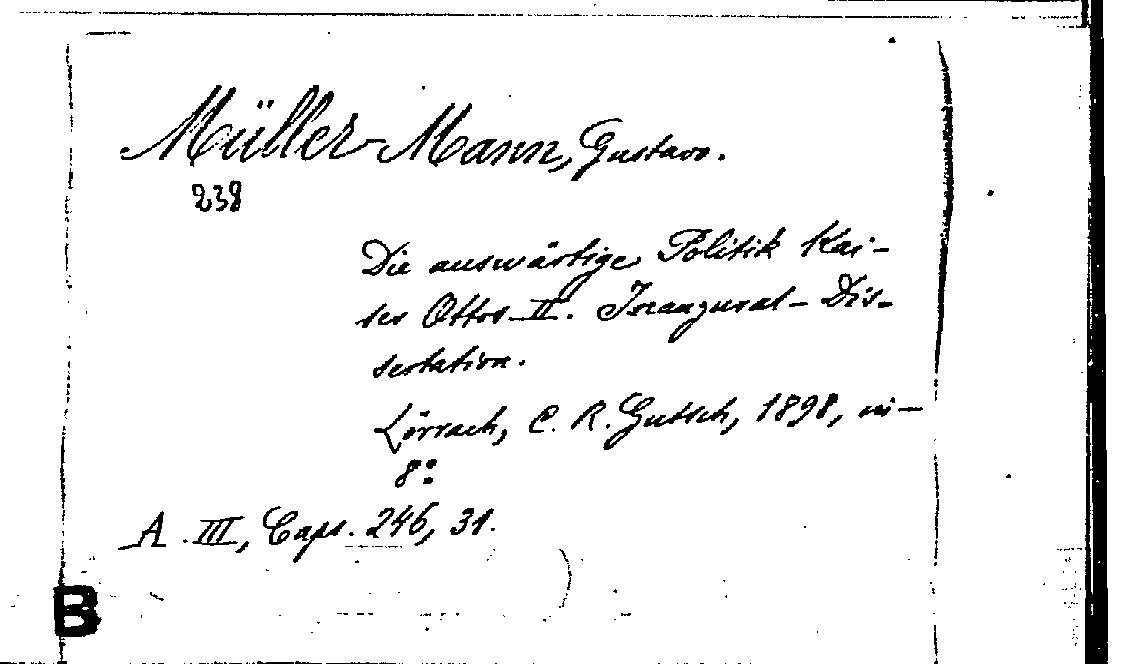 Müller-Mann, Gustavo.
238
Die auswärtige Politik Kai-
ser Ottos II. Inaugural-Dis-
sertation.
Lörrach, C. R. Gutsch, 1898, in-
8º
A. III, Caps. 246, 31.
B